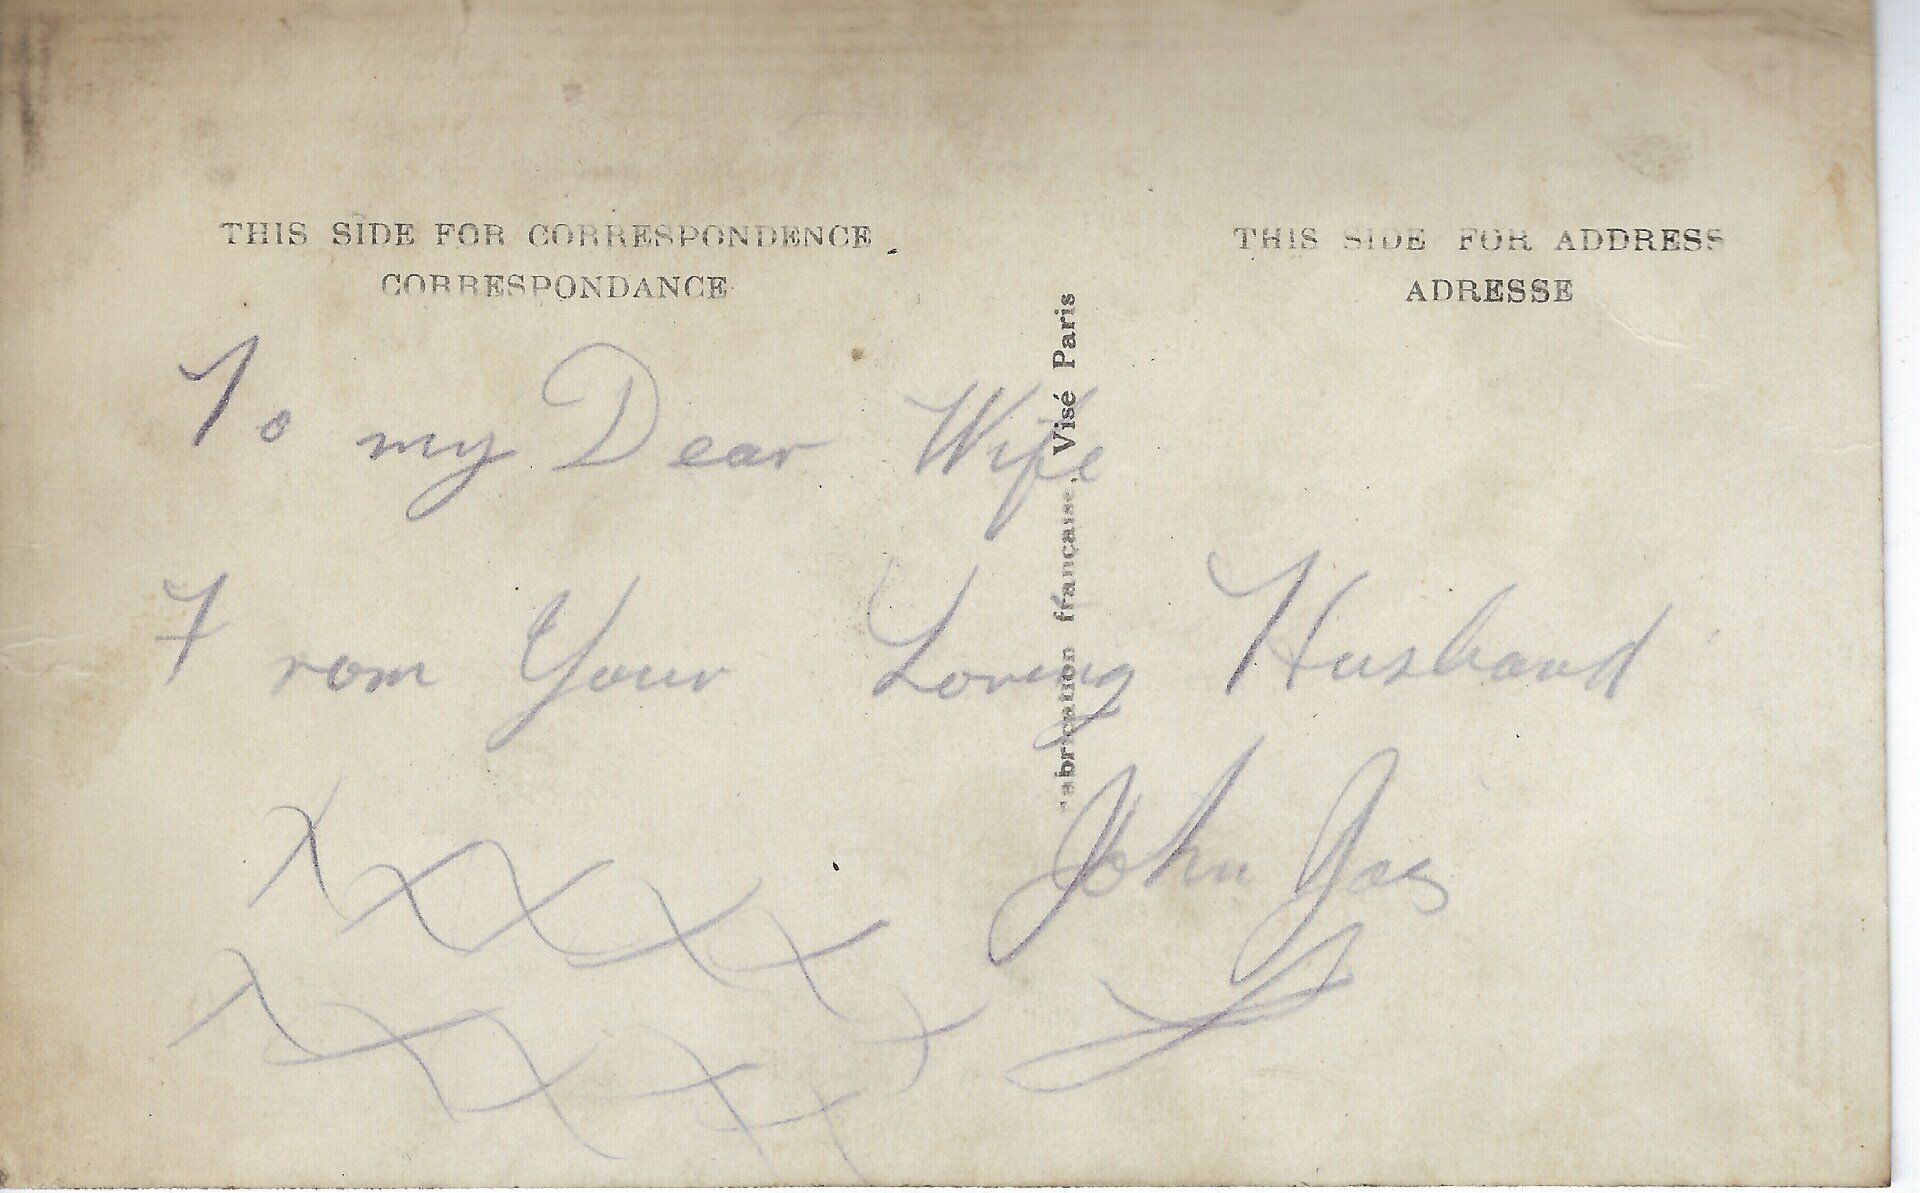 THIS SIDE FOR CORRESPONDENCE
CORRESPONDANCE
THIS SIDE FOR ADDRESS
ADRESSE
abrication française, Visé Paris
To my Dear Wife
From Your Loving Husband
John
XXXXX
XXXXX